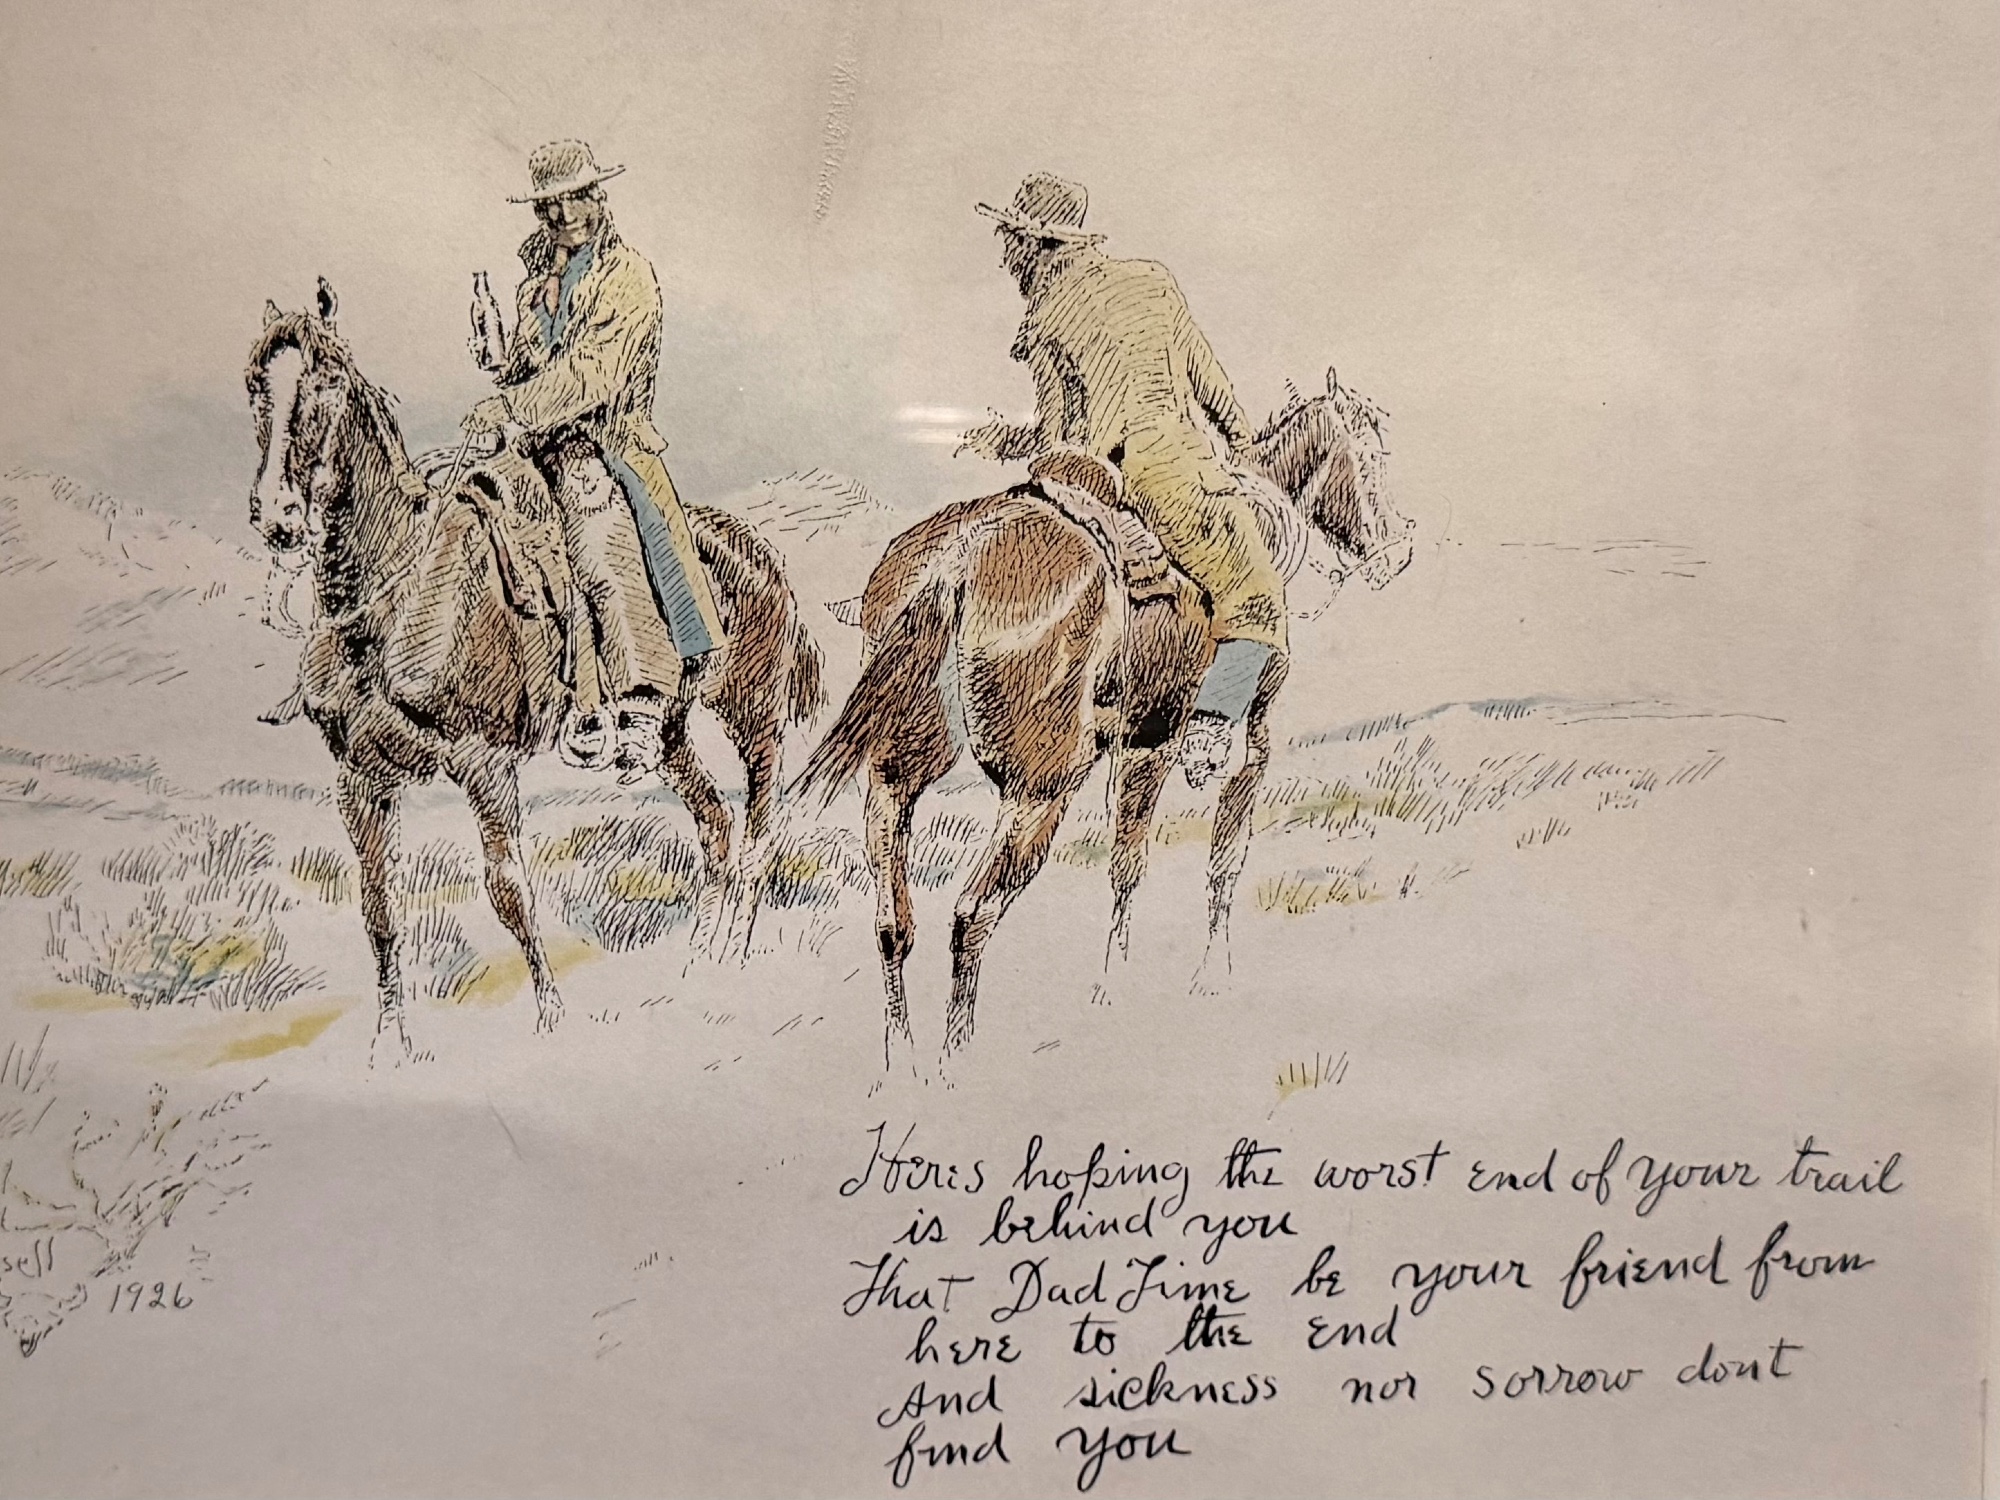 sell
1926
Heres hoping the worst end of your trail
is behind you
That Dad Time be your friend from
here to the end
And sickness nor sorrow dont
find you